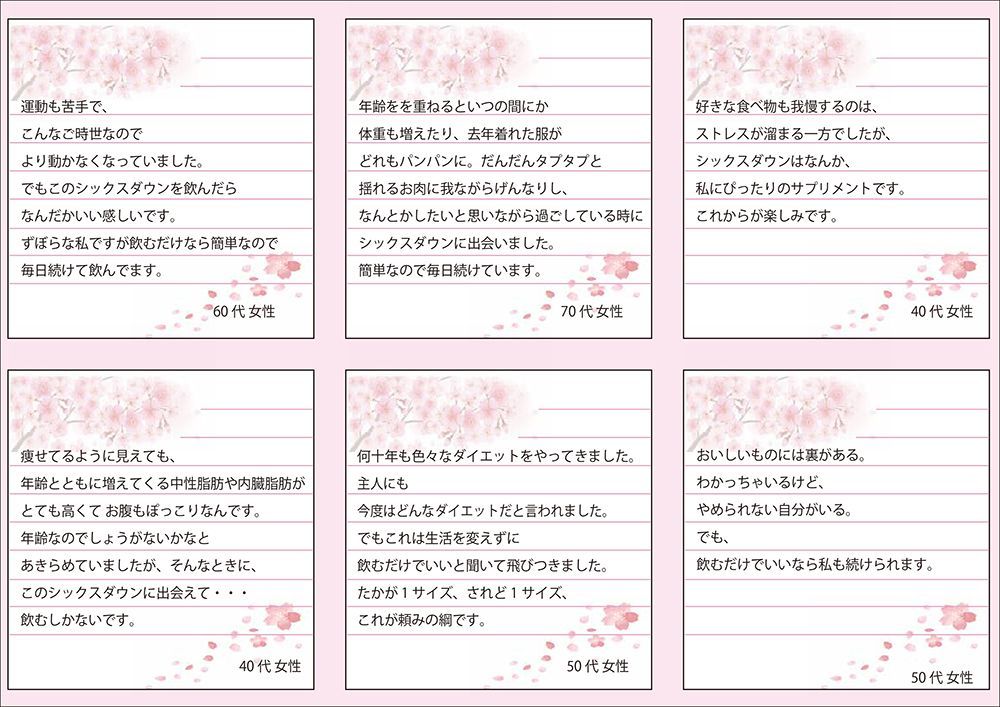 運動も苦手で、
こんなご時世なので
より動かなくなっていました。
でもこのシックスダウンを飲んだら
なんだかいい感しいです。
ずぼらな私ですが飲むだけなら簡単なので
毎日続けて飲んでます。
60代 女性
年齢をを重ねるといつの間にか
体重も増えたり、去年着れた服が
どれもパンパンに。だんだんタプタプと
揺れるお肉に我ながらげんなりし、
なんとかしたいと思いながら過ごしている時に
シックスダウンに出会いました。
簡単なので毎日続けています。
70代 女性
好きな食べ物も我慢するのは、
ストレスが溜まる一方でしたが、
シックスダウンはなんか、
私にぴったりのサプリメントです。
これからが楽しみです。
40代 女性
痩せてるように見えても、
年齢とともに増えてくる中性脂肪や内臓脂肪が
とても高くて お腹もぽっこりなんです。
年齢なのでしょうがないかなと
あきらめていましたが、そんなときに、
このシックスダウンに出会えて・・・
飲むしかないです。
40代 女性
何十年も色々なダイエットをやってきました。
主人にも
今度はどんなダイエットだと言われました。
でもこれは生活を変えずに
飲むだけでいいと聞いて飛びつきました。
たかが1サイズ、されど1サイズ、
これが頼みの綱です。
50代 女性
おいしいものには裏がある。
わかっちゃいるけど、
やめられない自分がいる。
でも、
飲むだけでいいなら私も続けられます。
50代 女性